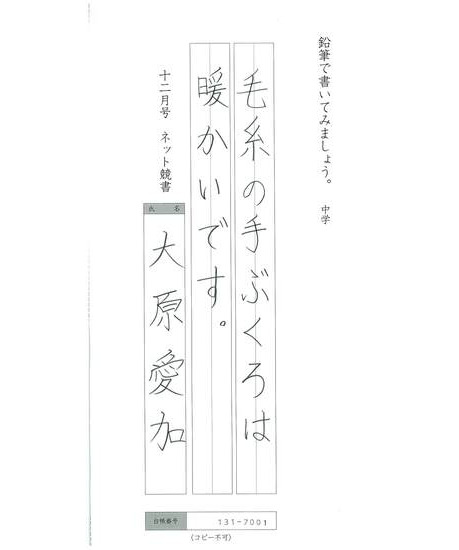 鉛筆で書いてみましょう。 中学
毛糸の手ぶくろは
暖かいです。
十二月号 ネット競書
氏名
大原愛加
台帳番号
131-7001
(コピー不可)